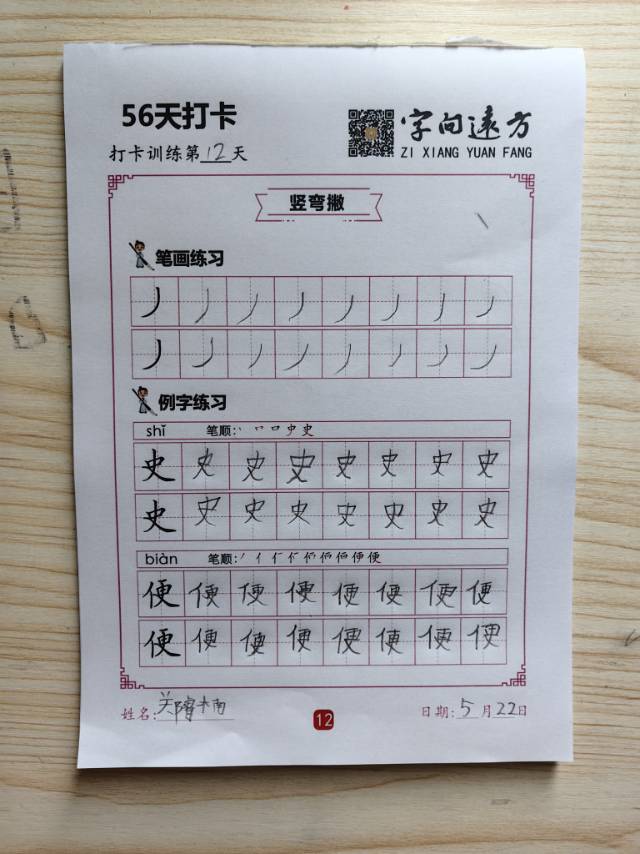 56天打卡
字向远方
打卡训练第12天
ZI XIANG YUAN FANG
竖弯撇
笔画练习
丿 丿 丿 丿 丿 丿 丿 丿
丿 丿 丿 丿 丿 丿 丿 丿
例字练习
shǐ 笔顺:
史 史 史 史 史 史 史 史
史 史 史 史 史 史 史 史
biàn 笔顺:
便 便 便 便 便 便 便 便
便 便 便 便 便 便 便 便
姓名: 日期:5月22日
12